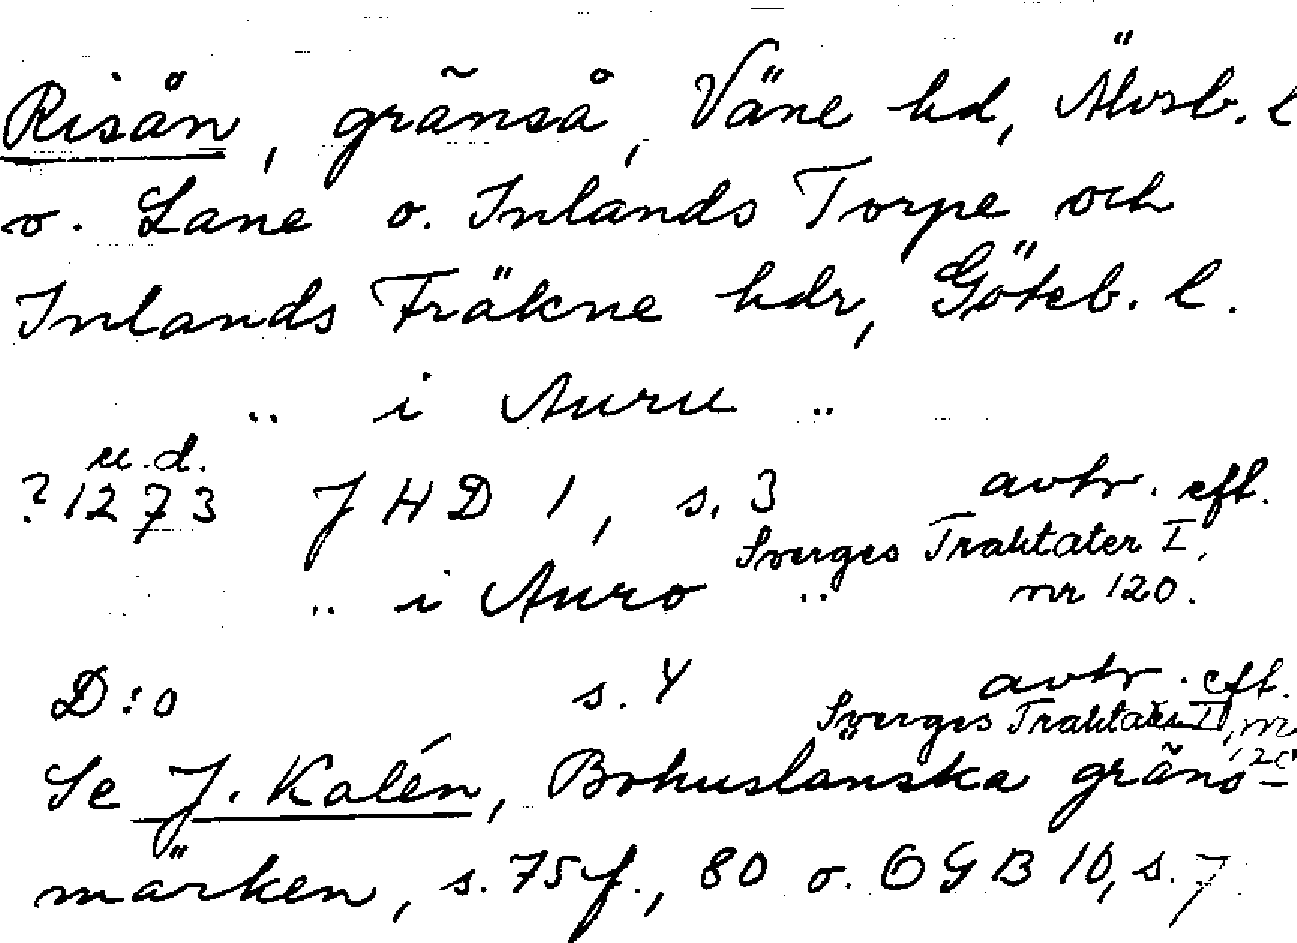 Risån, gränså, Väne hd, Älvsb. l
o. Lane o. Inlands Torpe och
Inlands Fräkne hdr, Göteb. l.
" i Auru "
u.d.
? 1273 JHD 1, s. 3 avtr. eft.
Sverges Traktater I,
" i Auro " nr 120.
D:o s. 4 avtr. eft.
Sverges Traktater I, nr
120
Se J. Kalén, Bohuslänska gräns-
märken, s. 75 f., 80 o. OGB 10, s. 7